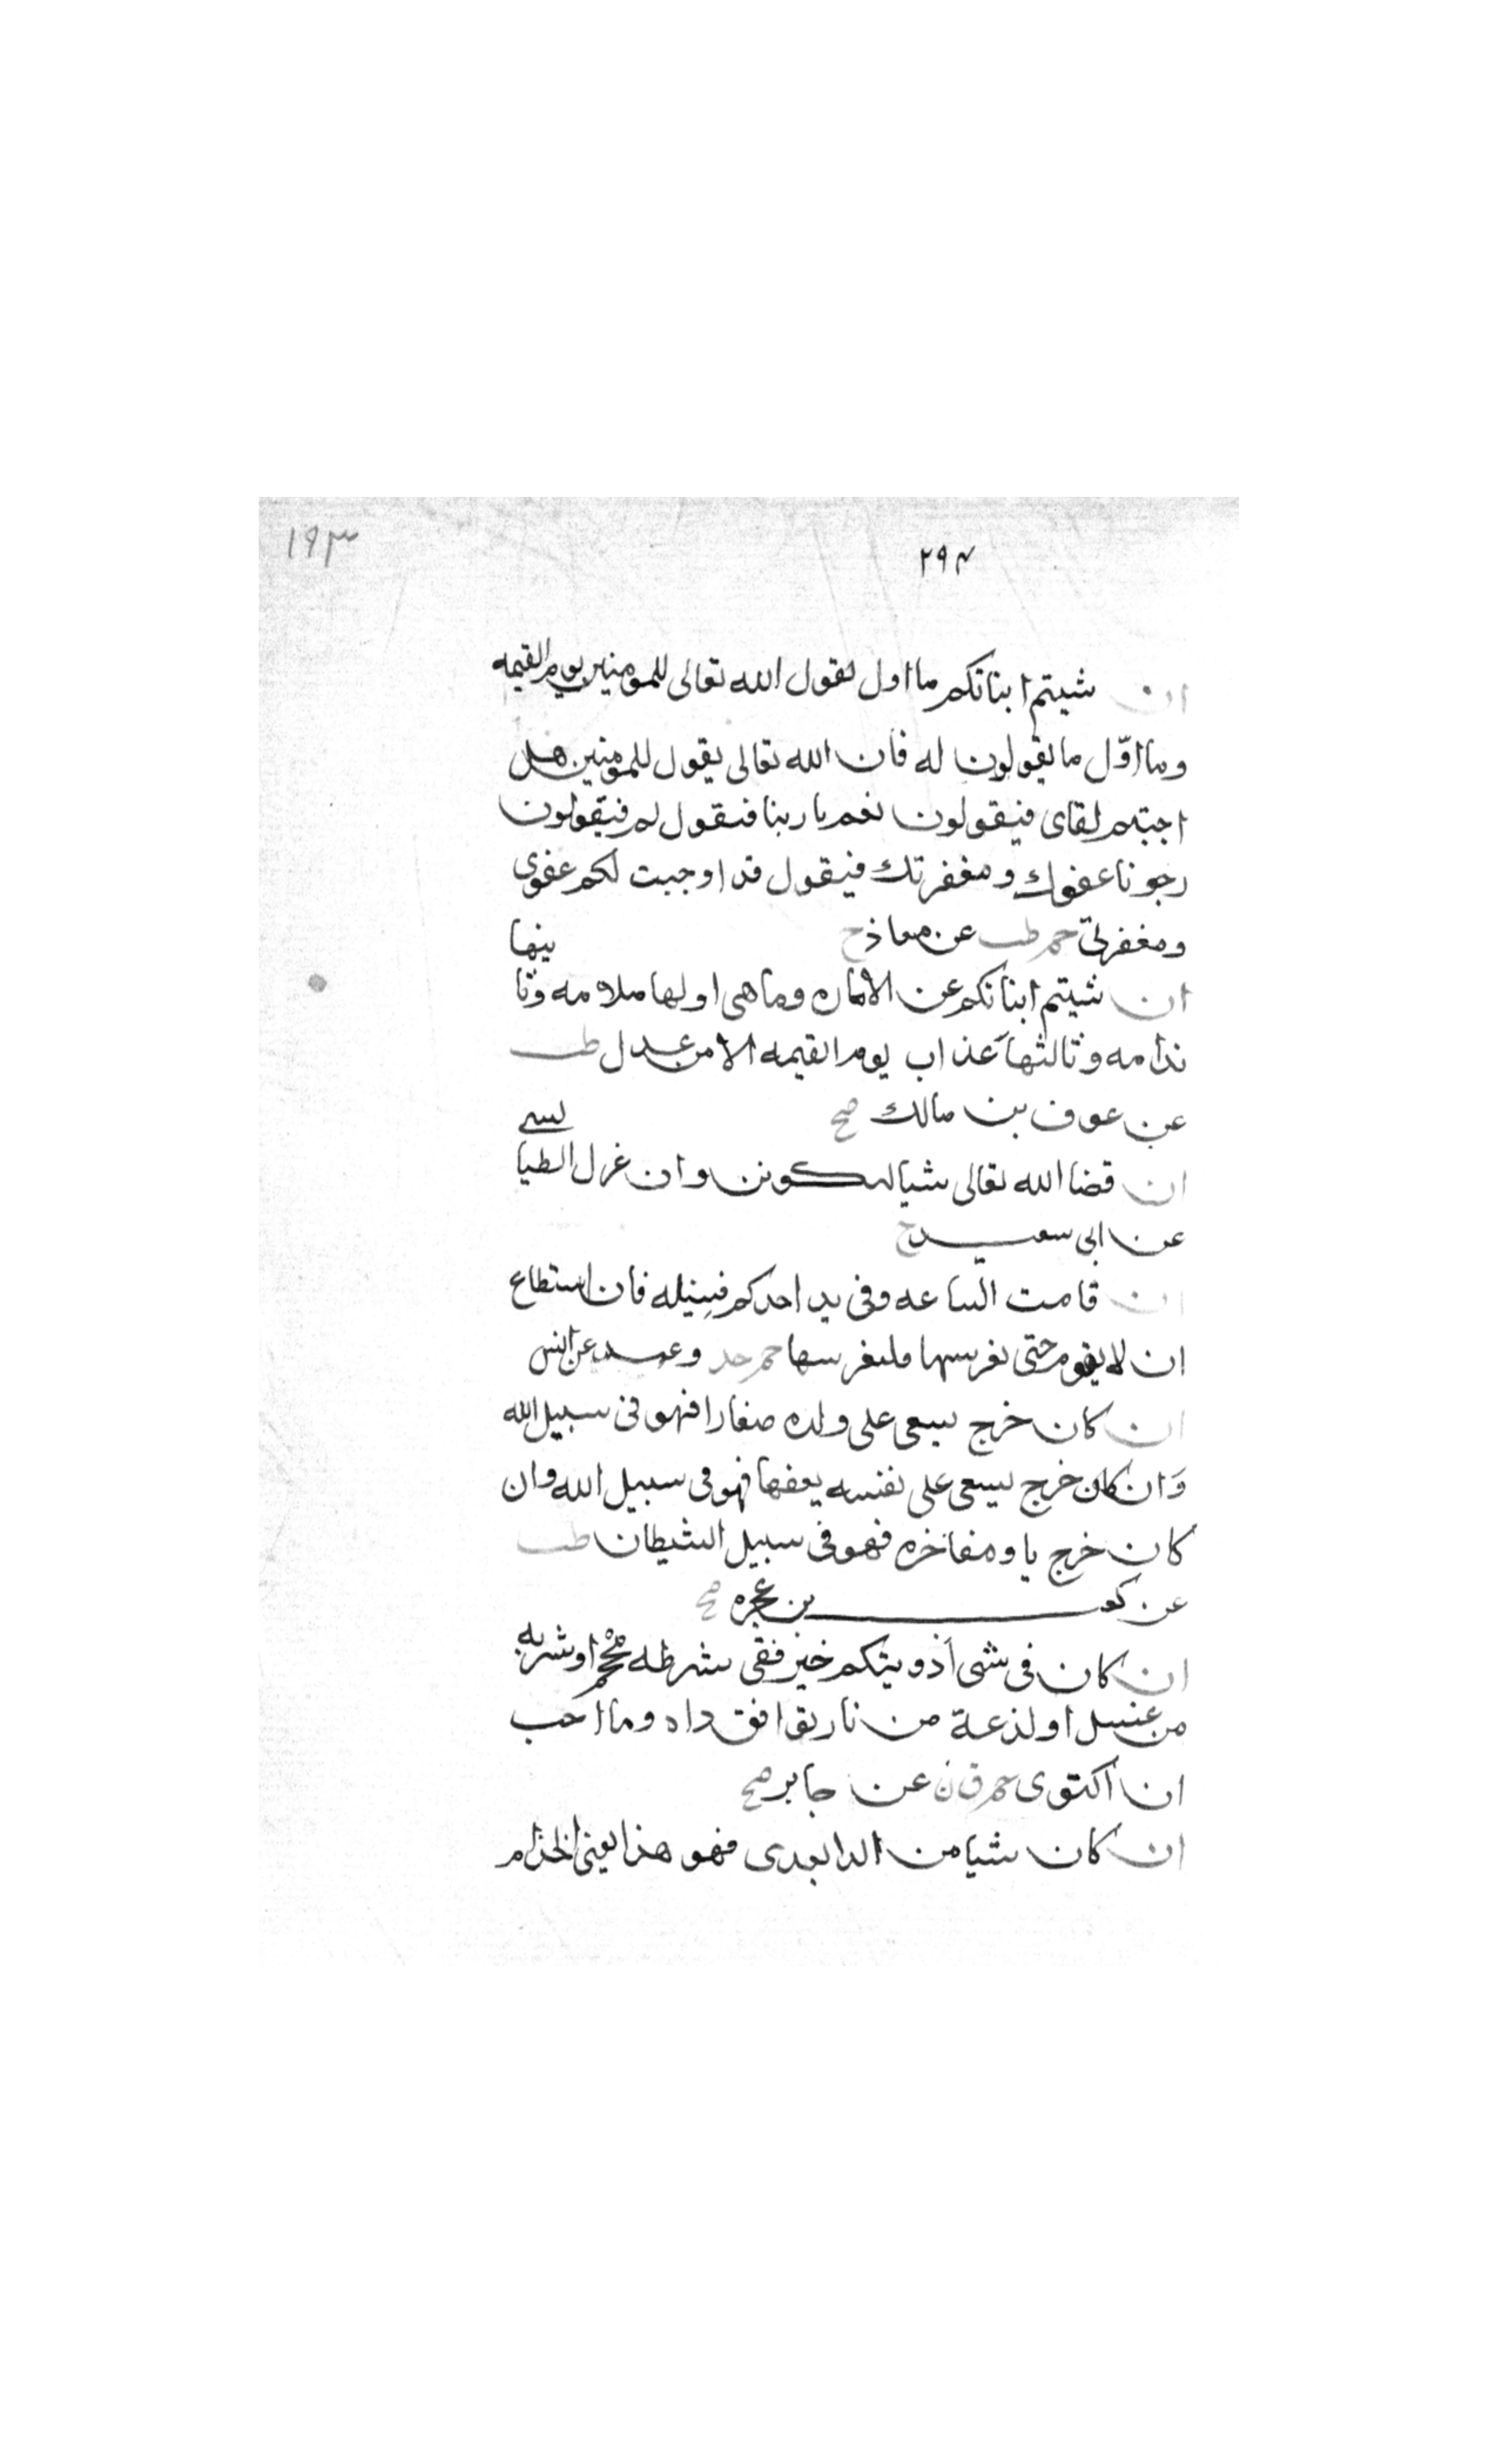 ١٩٣
٢٩٣
ان شيتم ابناتكم ما اول يقول الله تعالى للمومنين يوم القيمه
وما اوّل ما يقولون له فان الله تعالى يقول للمومنين هل
احببتم لقاى فيقولون نعم يا ربنا فيقول لم فيقولون
رجونا عفوك ومغفرتك فيقول قد اوجبت لكم عفوى
ومغفرتى حم طب عن معاذ ح
ان شيتم انباتكم عن الاماره وما هى اولها ملامه وثانيها
ندامه وثالثها عذاب يوم القيمه الا من عدل طب
عن عوف بن مالك صح
ان قضا الله تعالى شيا ليكونن وان عزل الطيالسى
عن ابى سعيد ح
ان قامت الساعه وفى يد احدكم فسيله فان استطاع
ان لا يقوم حتى يغرسها فليغرسها حم خد وعبد عن انس
ان كان خرج يسعى على ولده صغارا فهو فى سبيل الله
وان كان خرج يسعى على نفسه يعفها فهو فى سبيل الله وان
كان خرج يا ومفاخره فهو فى سبيل الشيطان طب
عن كعب بن عجره صح
ان كان فى شى ادويتكم خير ففى شرطه محجم او شربه
من عسل او لذعة من نار توافق داه وما احب
ان اكتوى حم ق ن عن جابر صح
ان كان شيا من الدا يعدى فهو هذا يعنى الجذام